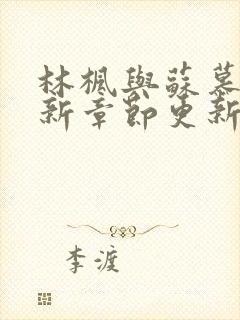 林楓與蘇慕
新章節更新
李渡